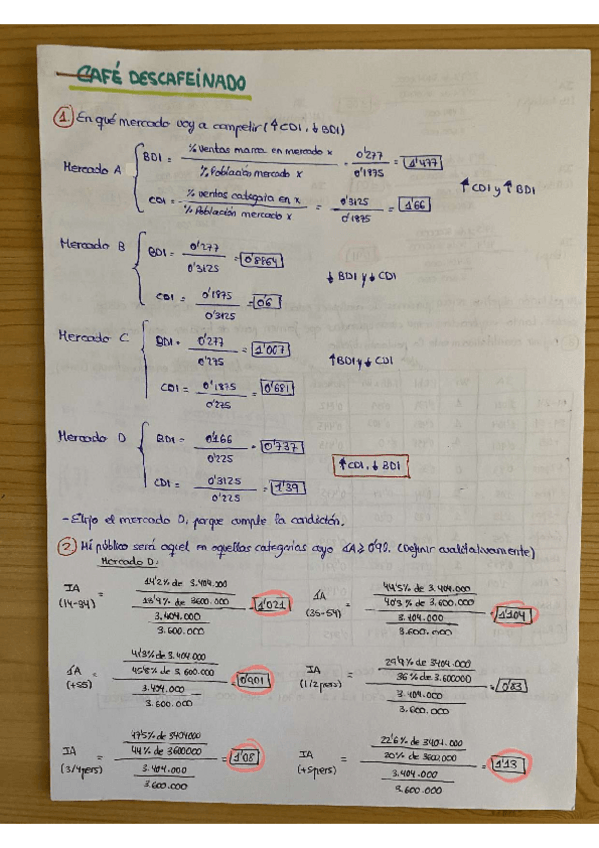 CAFÉ DESCAFEINADO
1. En qué mercado voy a competir (↑CDI, ↓BDI)
Mercado A
BDI = % ventas marca en mercado x / % Población mercado x = 0'277 / 0'1875 = 1'477
CDI = % ventas categoría en x / % Población mercado x = 0'3125 / 0'1875 = 1'66
↑CDI y ↑BDI
Mercado B
BDI = 0'277 / 0'3125 = 0'8864
CDI = 0'1875 / 0'3125 = 0'6
↓BDI y ↓CDI
Mercado C
BDI = 0'277 / 0'275 = 1'007
CDI = 0'1875 / 0'275 = 0'681
↑BDI y ↓CDI
Mercado D
BDI = 0'166 / 0'225 = 0'737
CDI = 0'3125 / 0'225 = 1'39
↑CDI, ↓BDI
- Elijo el mercado D, porque cumple la condición.
2. Mi público será aquel en aquellas categorías cuyo IA ≥ 0'90. (Definir cualitativamente)
Mercado D:
IA (14-34) = 14'2% de 3.404.000 / 13'9% de 3600.000 / 3.404.000 / 3.600.000 = 1'021
IA (35-54) = 44'5% de 3.404.000 / 40'3% de 3.600.000 / 3.404.000 / 3.600.000 = 1'104
IA (+55) = 41'3% de 3.404.000 / 45'8% de 3.600.000 / 3.404.000 / 3.600.000 = 0'901
IA (1/2 pers) = 29'9% de 3404.000 / 36% de 3.600000 / 3.404.000 / 3.600.000 = 0'83
IA (3/4 pers) = 47'5% de 3404000 / 44% de 3600000 / 3.404.000 / 3.600.000 = 1'08
IA (+5 pers) = 22'6% de 3404.000 / 20% de 3600.000 / 3.404.000 / 3.600.000 = 1'13